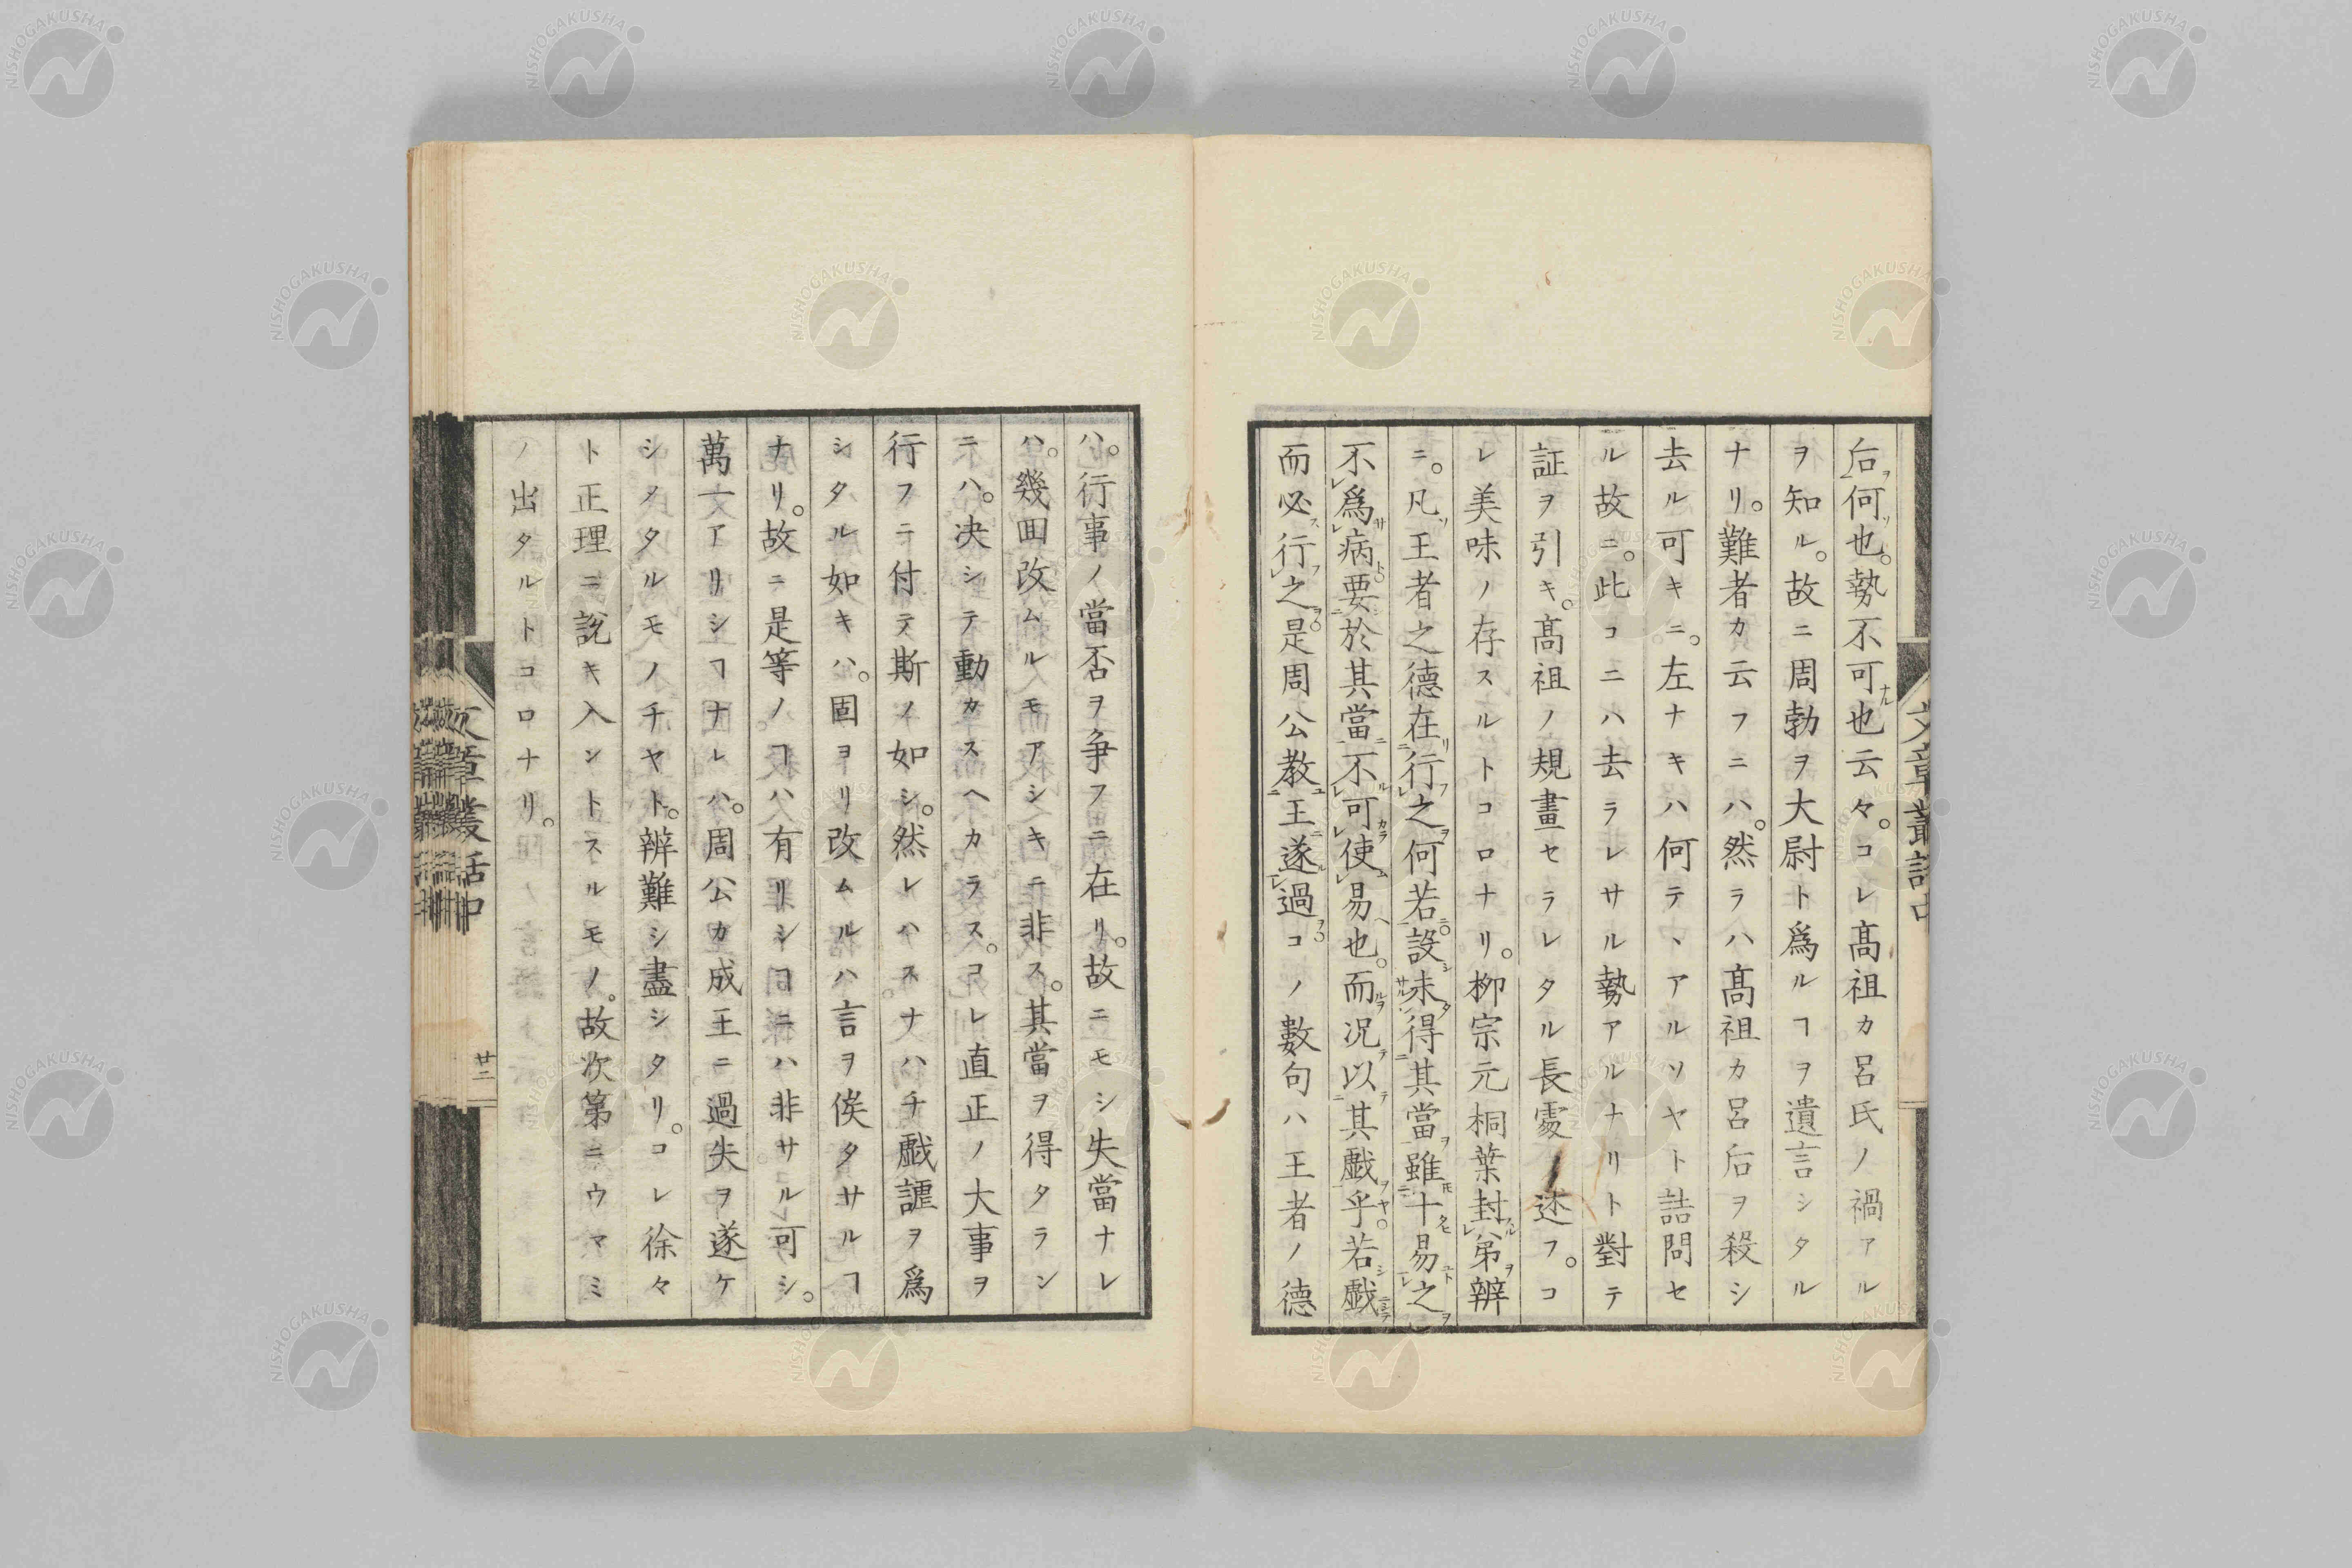 后何也。勢不可也云々。コレ髙祖カ呂氏ノ禍アル
ヲ知ル。故ニ周勃ヲ大尉ト爲ルヿヲ遺言シタル
ナリ。難者カ云フニハ。然ラハ髙祖カ呂后ヲ殺シ
去ル可キニ。左ナキハ何テヽアルソヤト詰問セ
ル故ニ。此コニハ去ラレサル勢アルナリト對テ
証ヲ引キ。髙祖ノ規畫セラレタル長處ヲ述フ。コ
レ美味ノ存スルトコロナリ。柳宗元桐葉封弟辨
ニ。凡王者之德在行之何若設未得其當雖十易之
不爲病要於其當不可使易也。而况以其戲乎若戲
而必行之是周公教王遂過コノ數句ハ王者ノ德
ハ。行事ノ當否ヲ争フニ在リ。故ニモシ失當ナレ
ハ。幾囬改ムルモアシキニ非ス。其當ヲ得タラン
ニハ。决シテ動カスヘカラス。コレ直正ノ大事ヲ
行フニ付テ斯ノ如シ。然レハスナハチ戲謔ヲ爲
シタル如キハ。固ヨリ改ムルハ言ヲ俟タサルヿ
ナリ。故ニ是等ノヿハ有リシヿニハ非サル可シ。
萬一アリシヿナレハ。周公カ成王ニ過失ヲ遂ケ
シメタルモノチヤト。辨難シ盡シタリ。コレ徐々
ト正理ニ説キ入ントスルモノ。故次第ニウマミ
ノ出タルトコロナリ。
文章叢話中
廿三